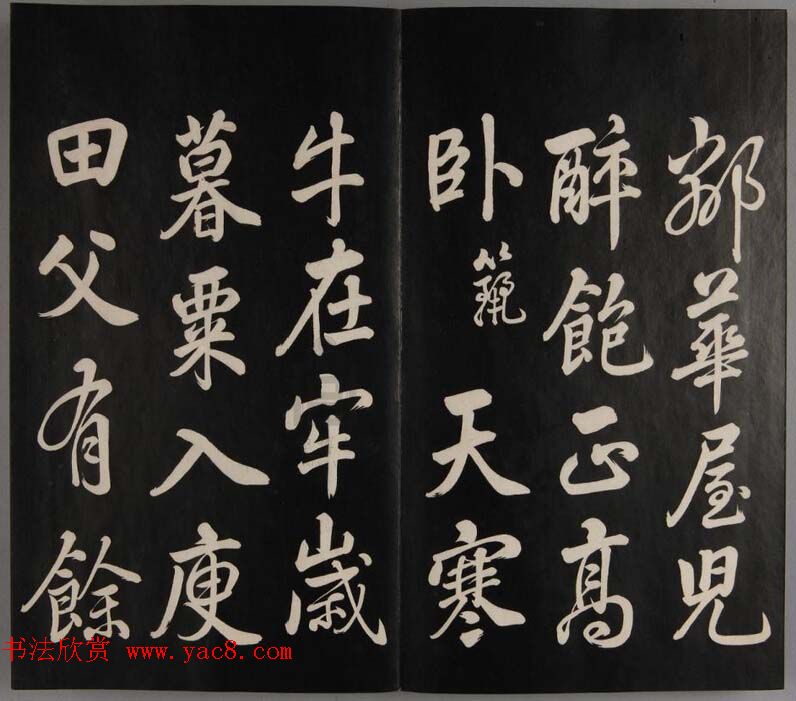 鄰華屋兒
醉飽正高
臥
天寒
牛在牢歲
暮粟入庾
田父有餘
书法欣赏 www.yac8.com